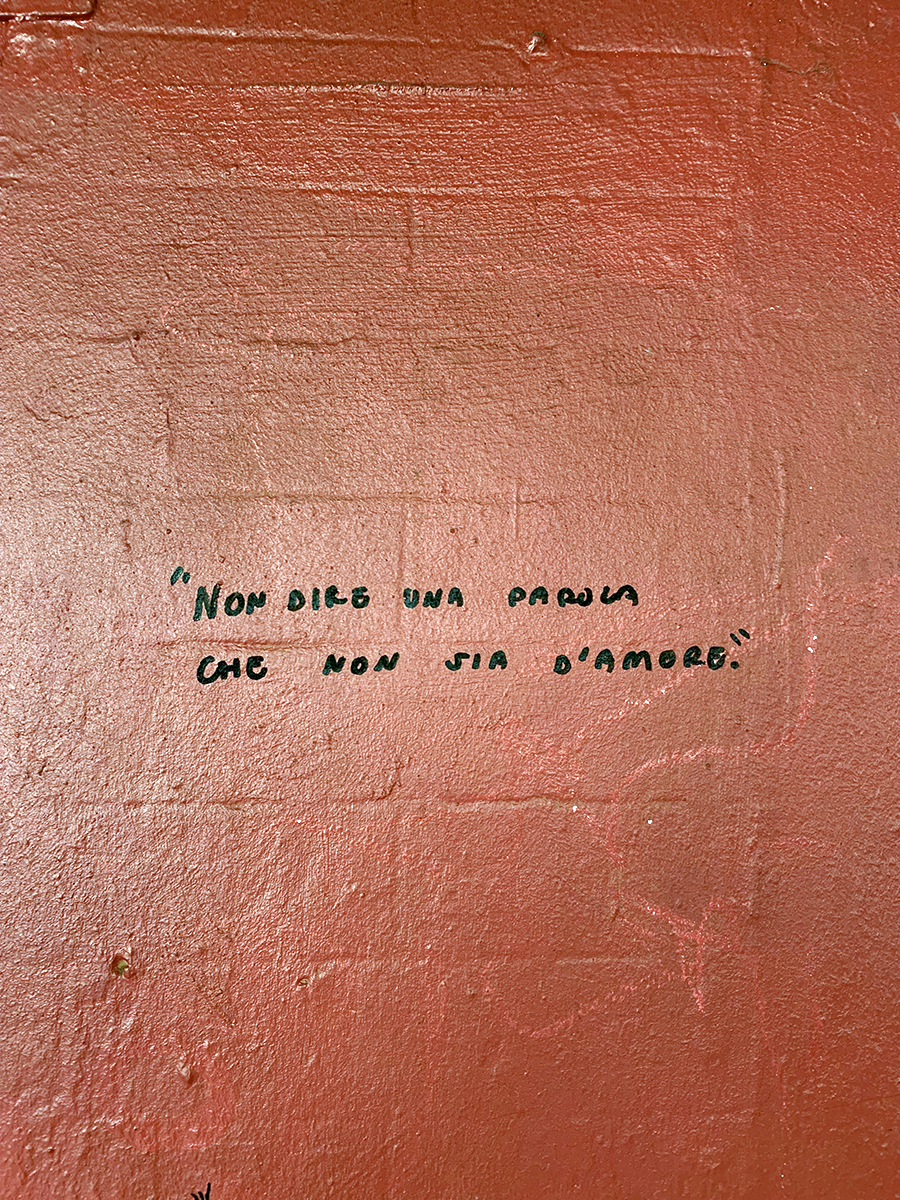 "NON DIRE UNA PAROLA
CHE NON SIA D'AMORE."